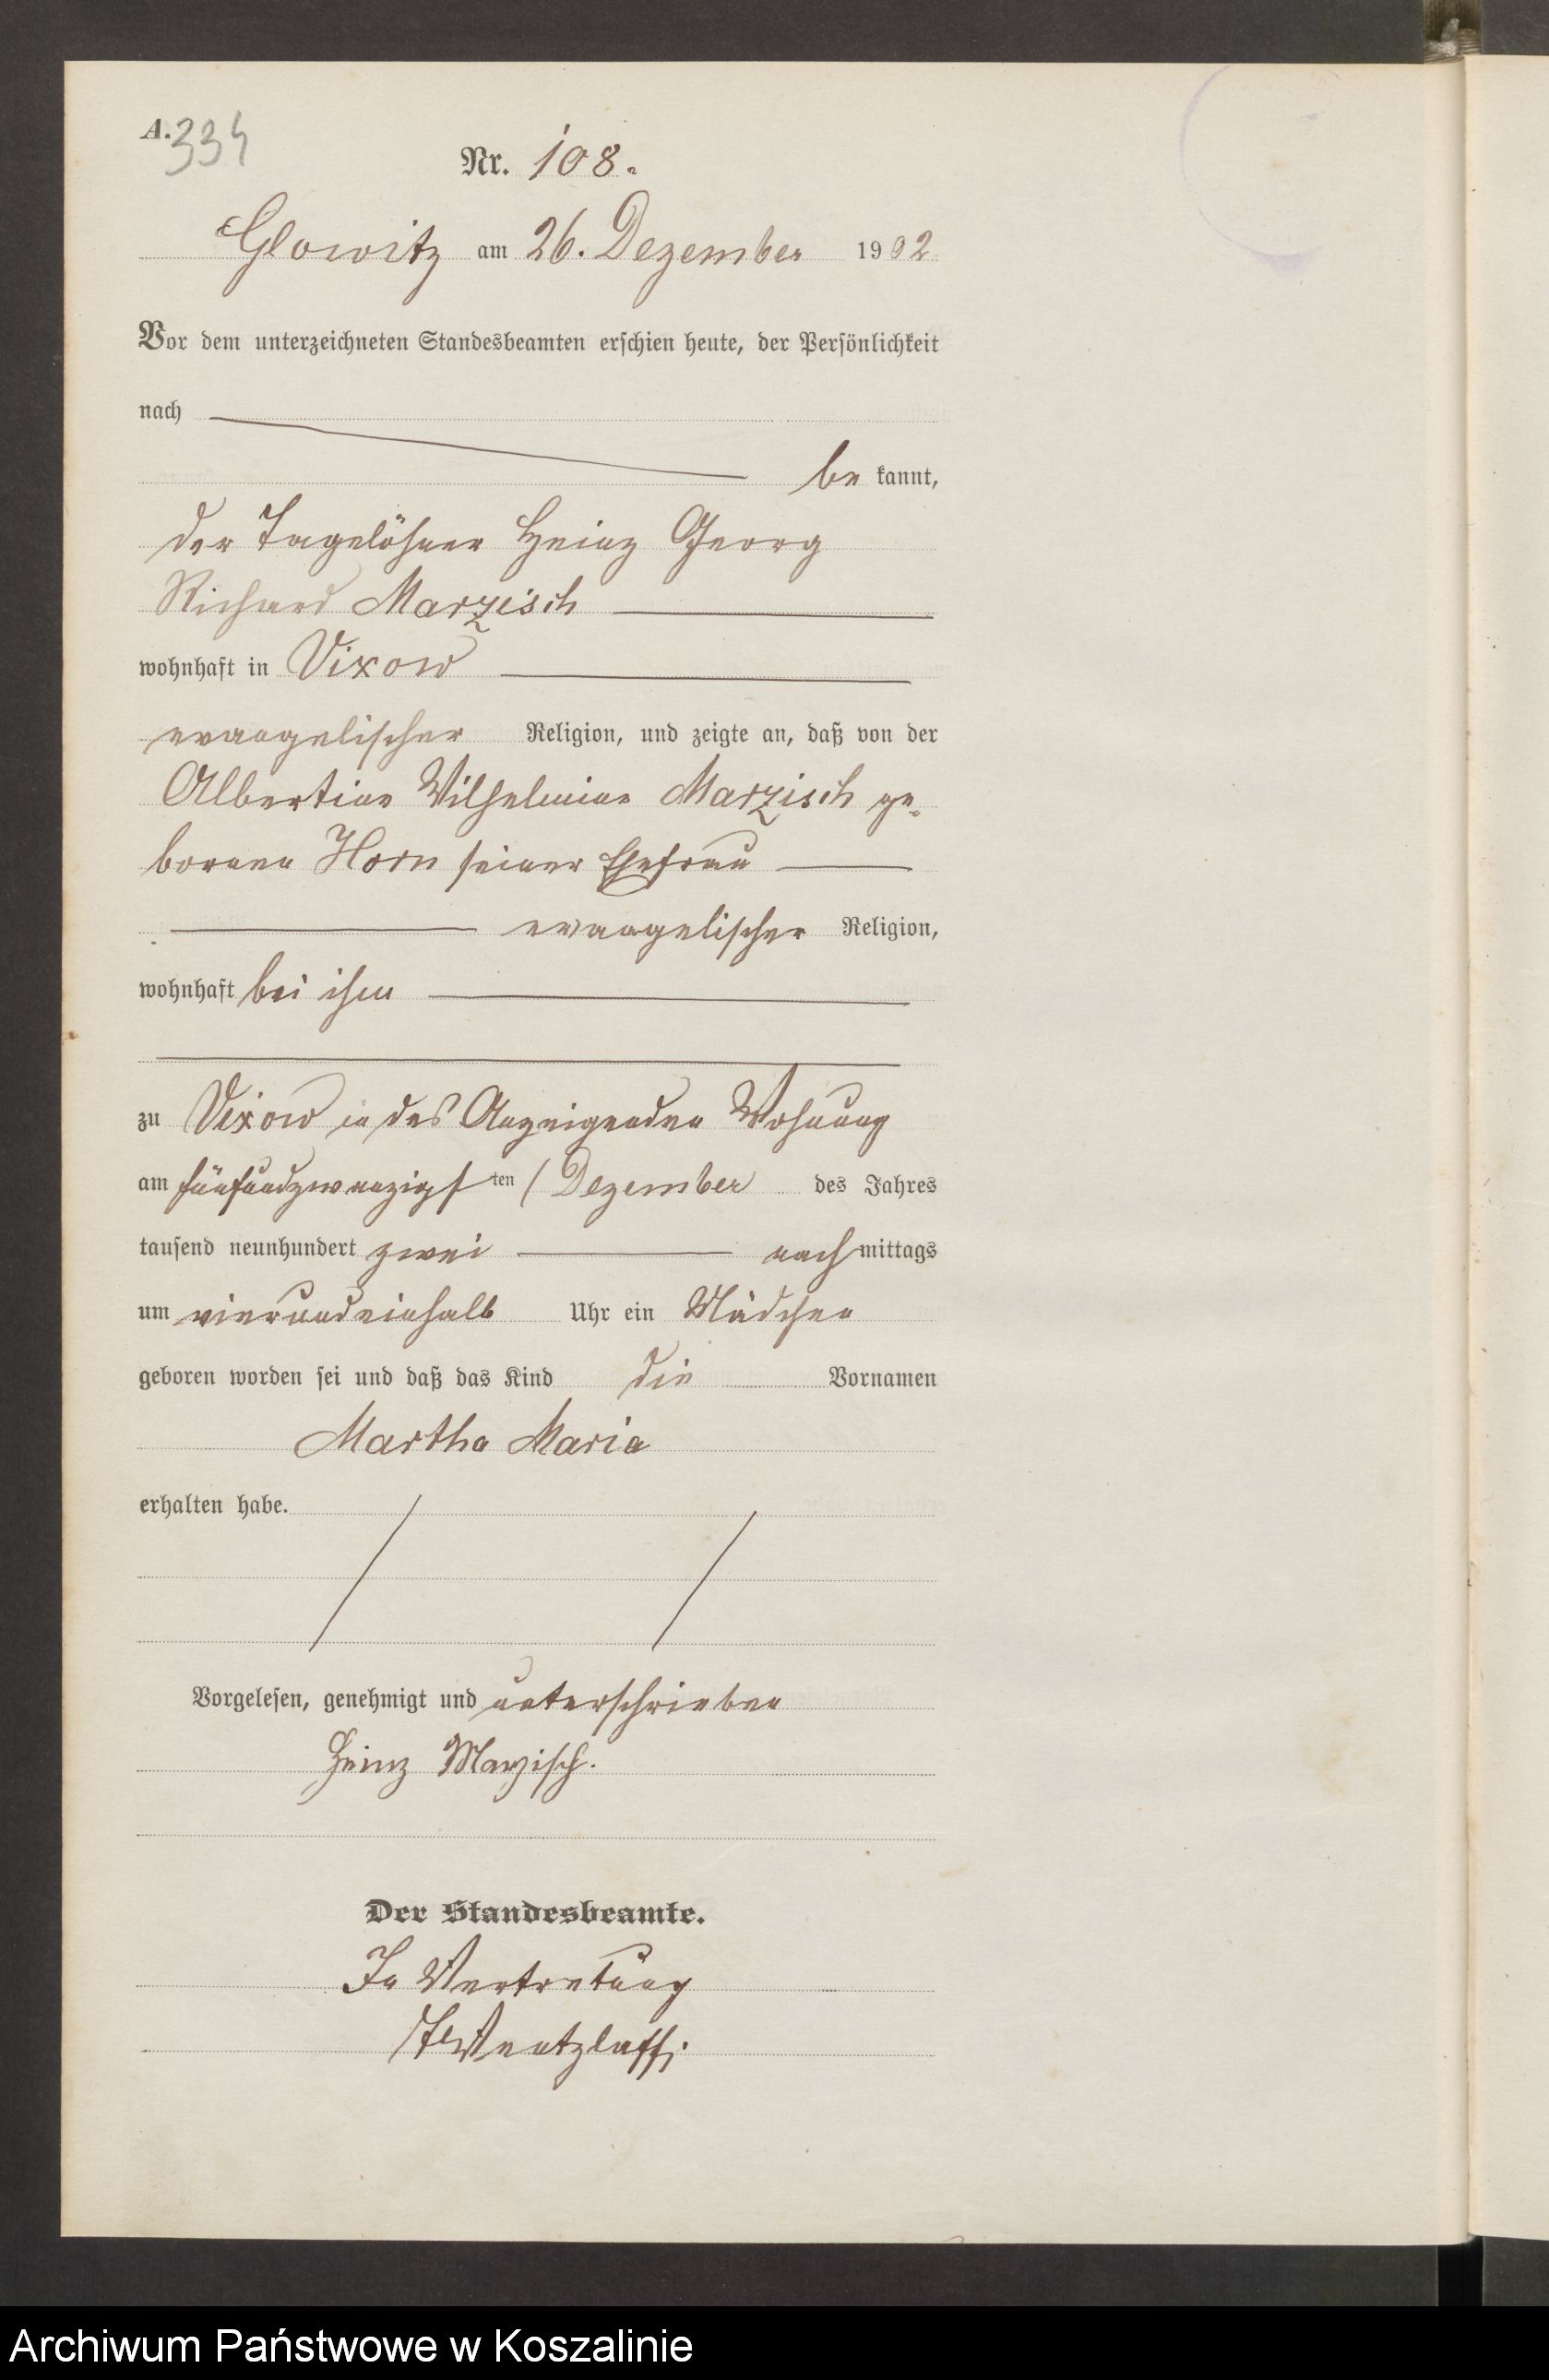 A.
334
Nr. 108.
Glowitz am 26. Dezember 1902
Vor dem unterzeichneten Standesbeamten erschien heute, der Persönlichkeit
nach
be kannt,
der Tagelöhner Heinz Georg
Richard Marzisch
wohnhaft in Vixow
evangelischer Religion, und zeigte an, daß von der
Albertine Wilhelmine Marzisch ge-
borenen Horn seiner Ehefrau
evangelischer Religion,
wohnhaft bei ihm
zu Vixow in des Anzeigenden Wohnung
am fünfundzwanzigsten Dezember des Jahres
tausend neunhundert zwei nach mittags
um vierundeinhalb Uhr ein Mädchen
geboren worden sei und daß das Kind die Vornamen
Martha Maria
erhalten habe.
Vorgelesen, genehmigt und unterschrieben
Heinz Marzisch.
Der Standesbeamte.
In Vertretung
Wentzlaff.
Archiwum Państwowe w Koszalinie